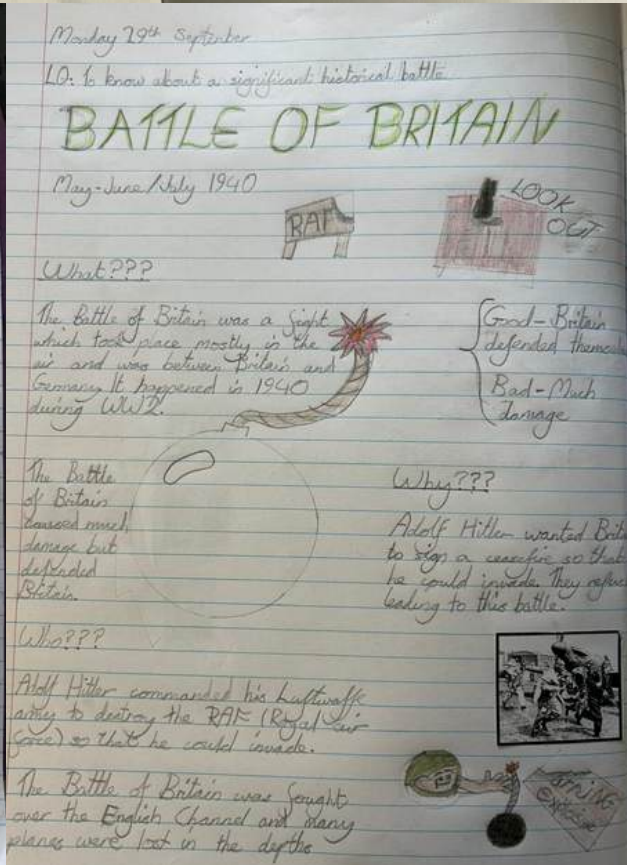 Monday 29th September
LO: To know about a significant historical battle
BATTLE OF BRITAIN
May-June/July 1940
RAF
LOOK
OUT
What???
The Battle of Britain was a fight
which took place mostly in the
air and was between Britain and
Germany. It happened in 1940
during WW2.
Good-Britain
defended themsel
Bad-Much
damage
The Battle
of Britain
caused much
damage but
defended
Britain.
Why???
Adolf Hitler wanted Brit
to sign a ceasefire so that
he could invade. They refus
leading to this battle.
Who???
Adolf Hitler commanded his Luftwaffe
army to destroy the RAF (Royal air
force) so that he could invade.
The Battle of Britain was fought
over the English Channel and many
planes were lost in the depths